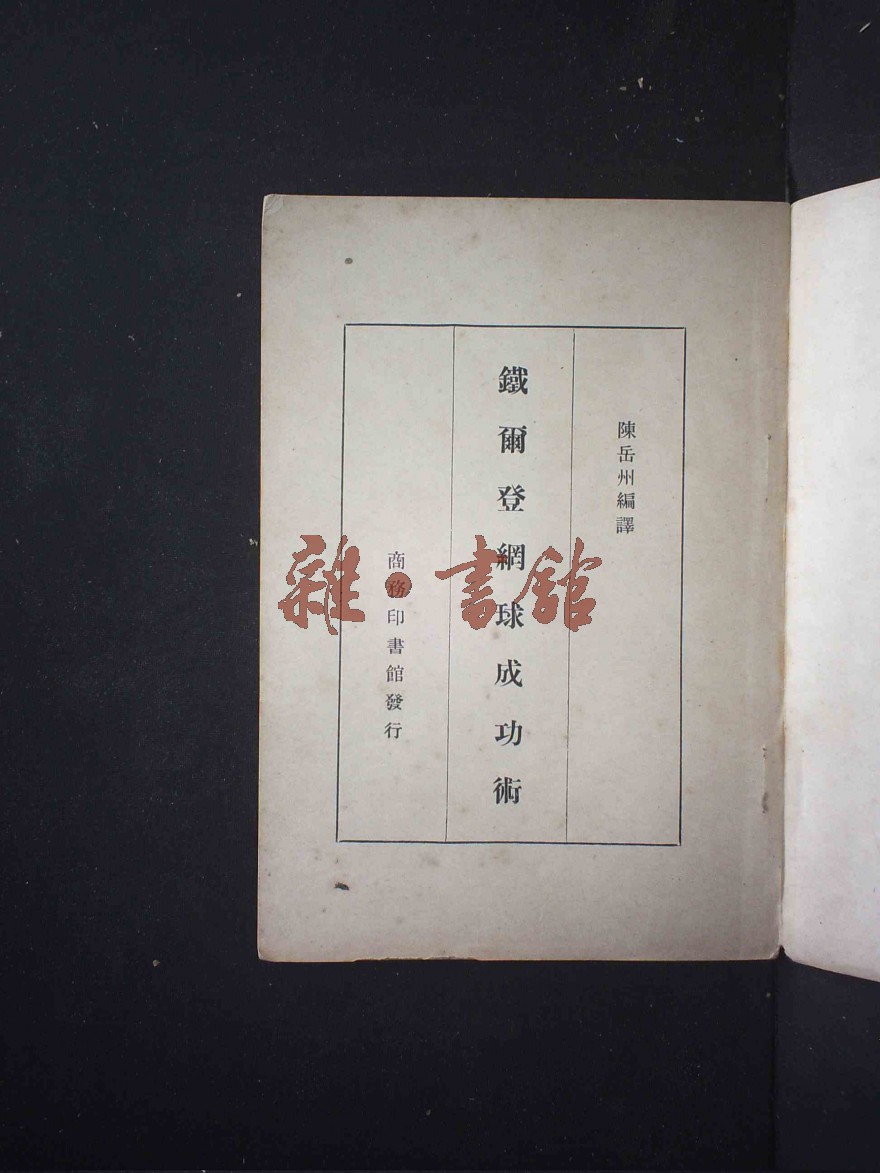 陳岳州編譯
鐵爾登網球成功術
商務印書館發行
雜·書館